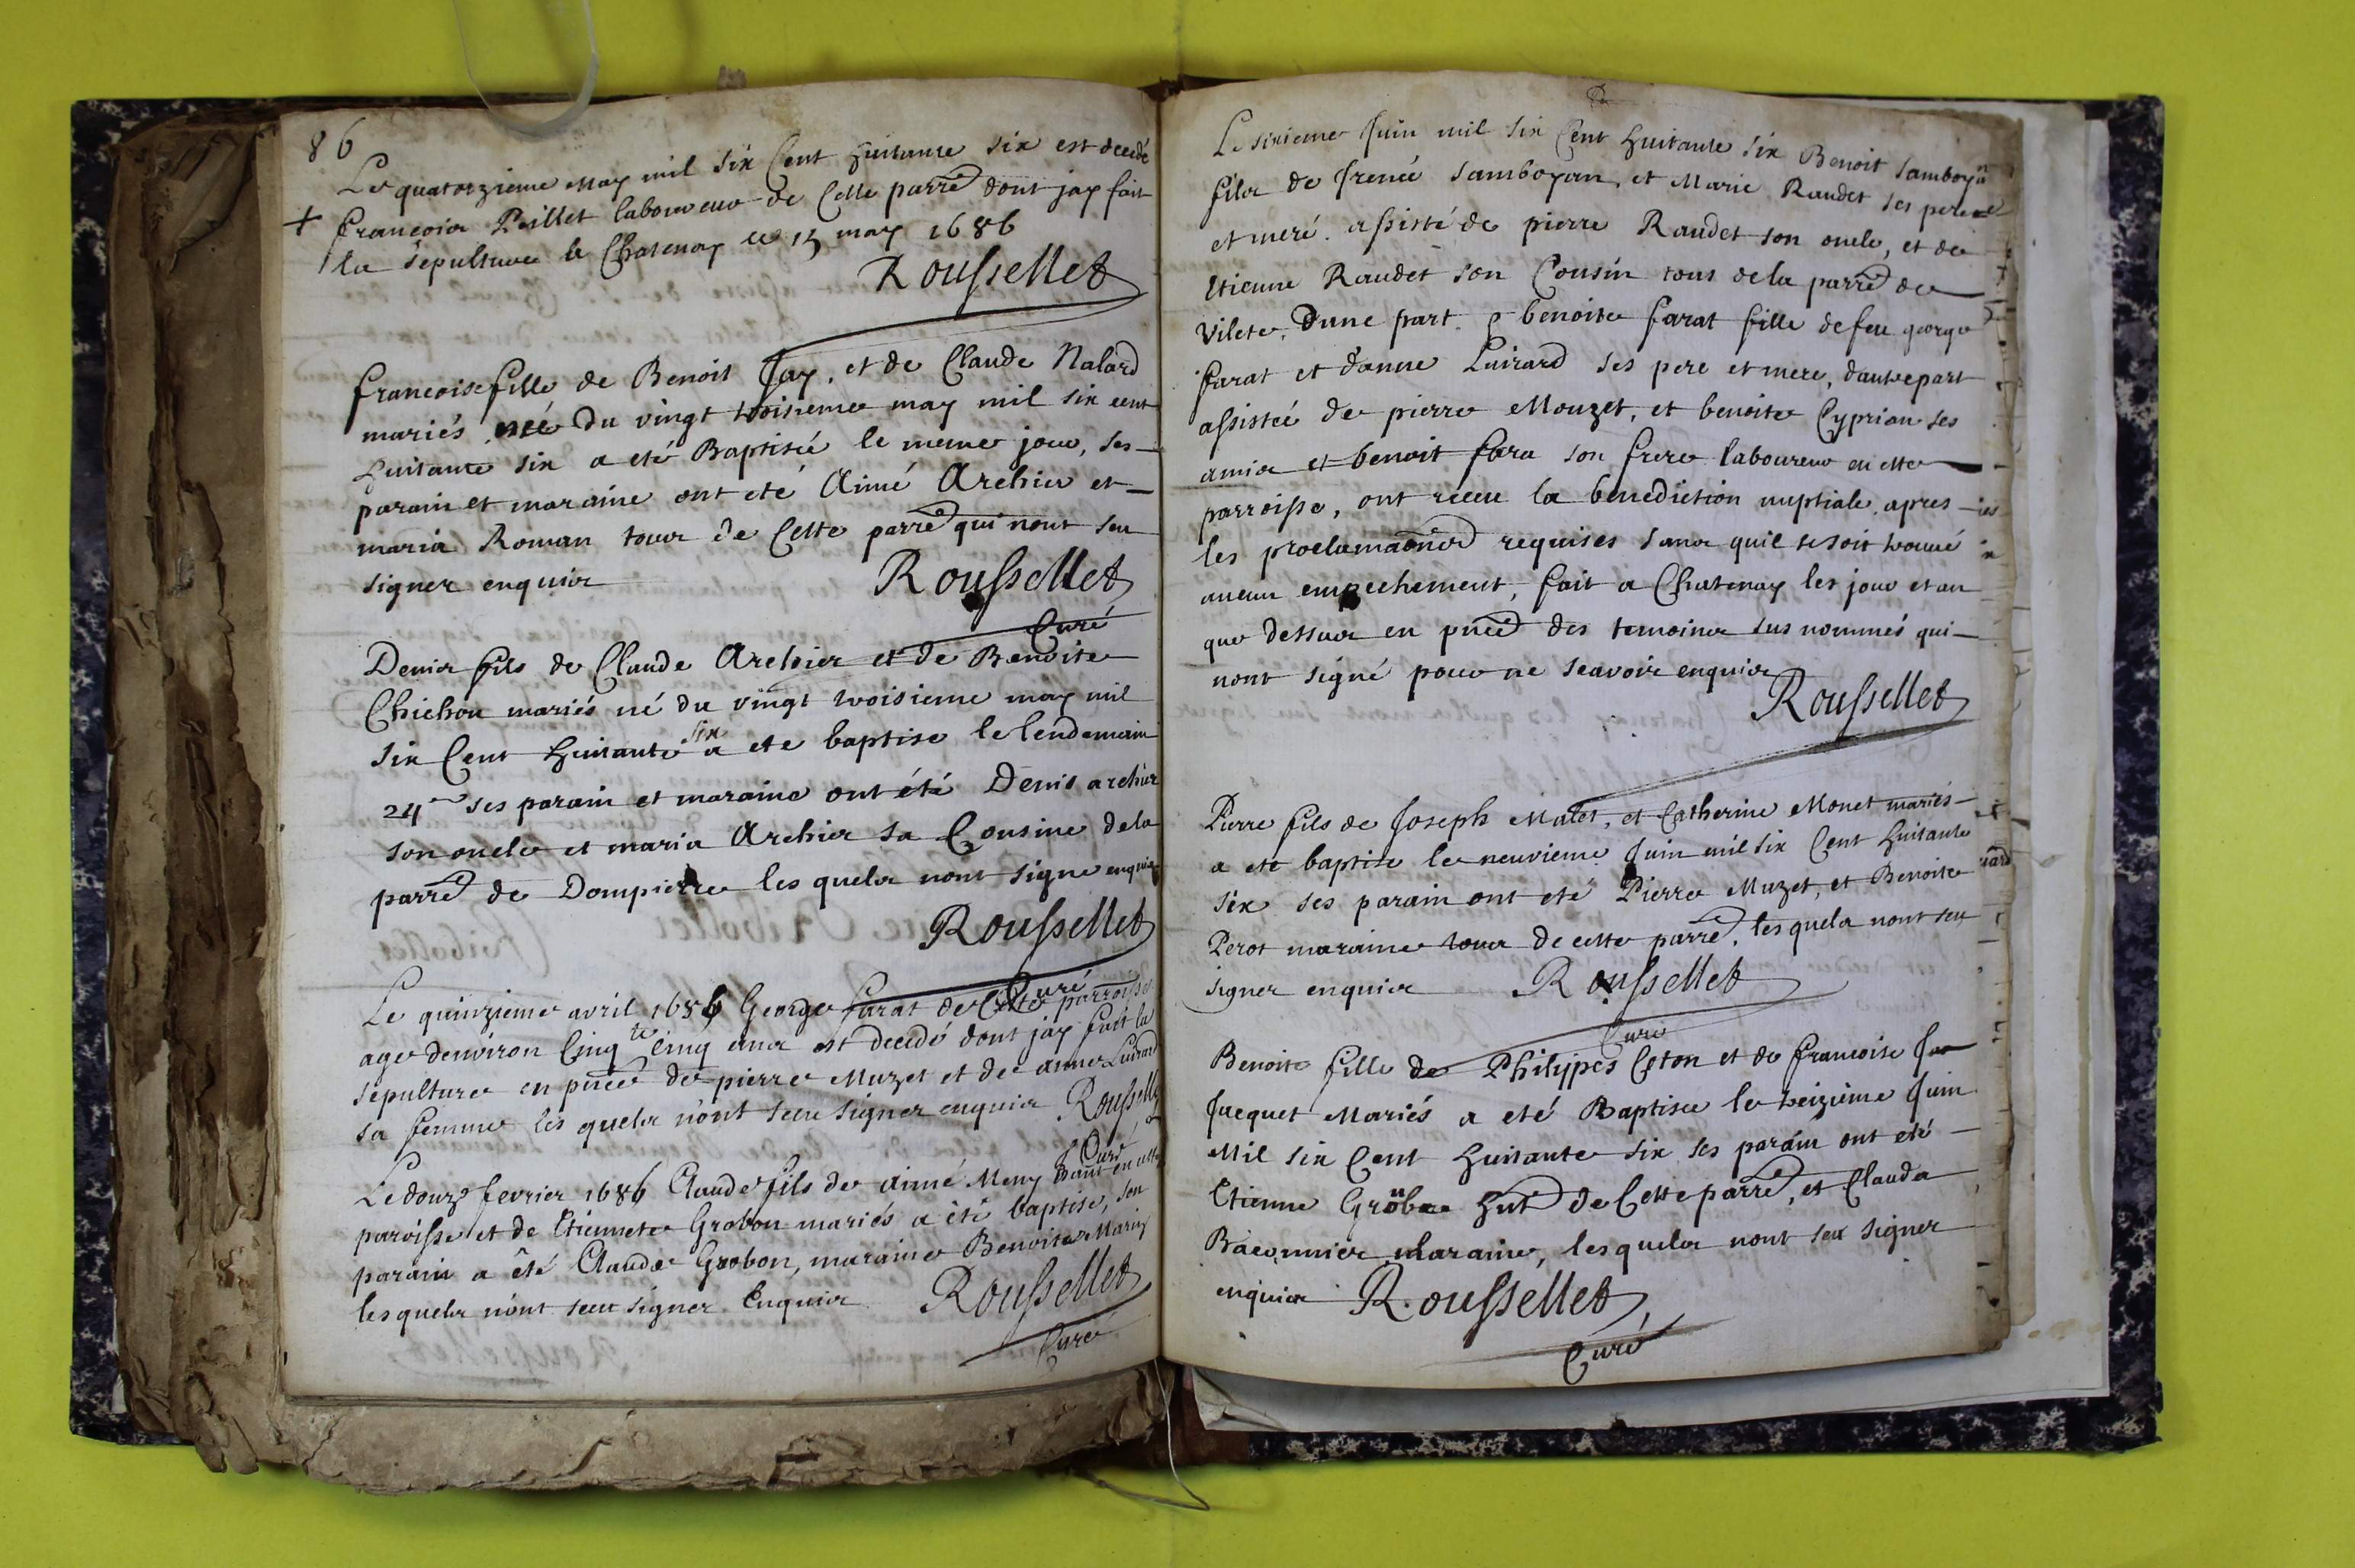 86
Le quatorzieme may mil six Cent huitante six est decedé
+ francois Peillet laboureur de Cette parre dont jay fait
la sepulture le Chatenay ce 15 may 1686
Roussellet
francoise fille de Benoit Jay, et de Claude Nalard
mariés néé du vingt troisieme may mil six cent
huitante six a eté Baptisée le meme jour, ses
parain et maraine ont eté Aimé Archier et
maria Roman tous de Cette parre qui nont seu
signer enquis
Roussellet
Curé
Denis fils de Claude Archier et de Benoite
Chichou mariés né du vingt troisieme may mil
six Cent huitante six a ete baptise le lendemain
24me ses parain et maraine ont été Denis archier
son oncle et maria Archier sa Cousine dela
parre de Dompierre les quels nont signe enquis
Roussellet
Curé
Le quinzieme avril 1686 George farat de Cette parroisse
age denviron Cinqte Cinq ans est decedé dont jay fait la
sepulture en pnce de pierre Muzet et de anne Luirard
sa femme les quels n'ont sceu signer enquis Roussellet
Curé
Le douze fevrier 1686 Claude fils de Aimé Meny hant en cette
paroisse et de Etiennete Grobon mariés a été baptise, son
parain a été Claude Grobon, maraine Benoite Marin
lesquels n'ont sceu signer Enquis Roussellet
Curé
Le sixieme Juin mil six Cent huitante six Benoit Samboyan
fils de frenée Samboyan, et Marie Raudet ses pere
et meré. assisté de pierre Raudet son oncle, et de
Etienne Raudet son Cousin tous dela parre de
Vilete, Dune part, & benoite farat fille de feu george
farat et danne Luirard ses pere et mere, dautrepart
assistée de pierre Mouzet, et benoite Cyprian ses
amis et benoit fara son frere laboureur en cette
parroisse, ont receu la benediction nuptiale, apres
les proclamaones requises sans quil se soit trouué
aucun empechement, fait a Chatenay les jour et an
que dessus en pnce des temoins sus nommés qui
nont signé pour ne scavoir enquis
Roussellet
Pierre fils de Joseph Malet, et Catherine Monet mariés
a eté baptise le neuvieme Juin mil six Cent huitante
six ses parain ont eté Pierre Muzet, et Benoite
Perot maraine tous de cette parre, les quels nont seu
signer enquis Roussellet
Curé
Benoite fille de Philippes Coton et de francoise Jac
Jacquet Mariés a eté Baptisee le treizieme Juin
Mil six Cent huitante six ses parain ont eté
Etienne Grobon hnt de Cette parre, et Clauda
Baconnier maraine, lesquels nont seu signer
enquis Roussellet
Curé